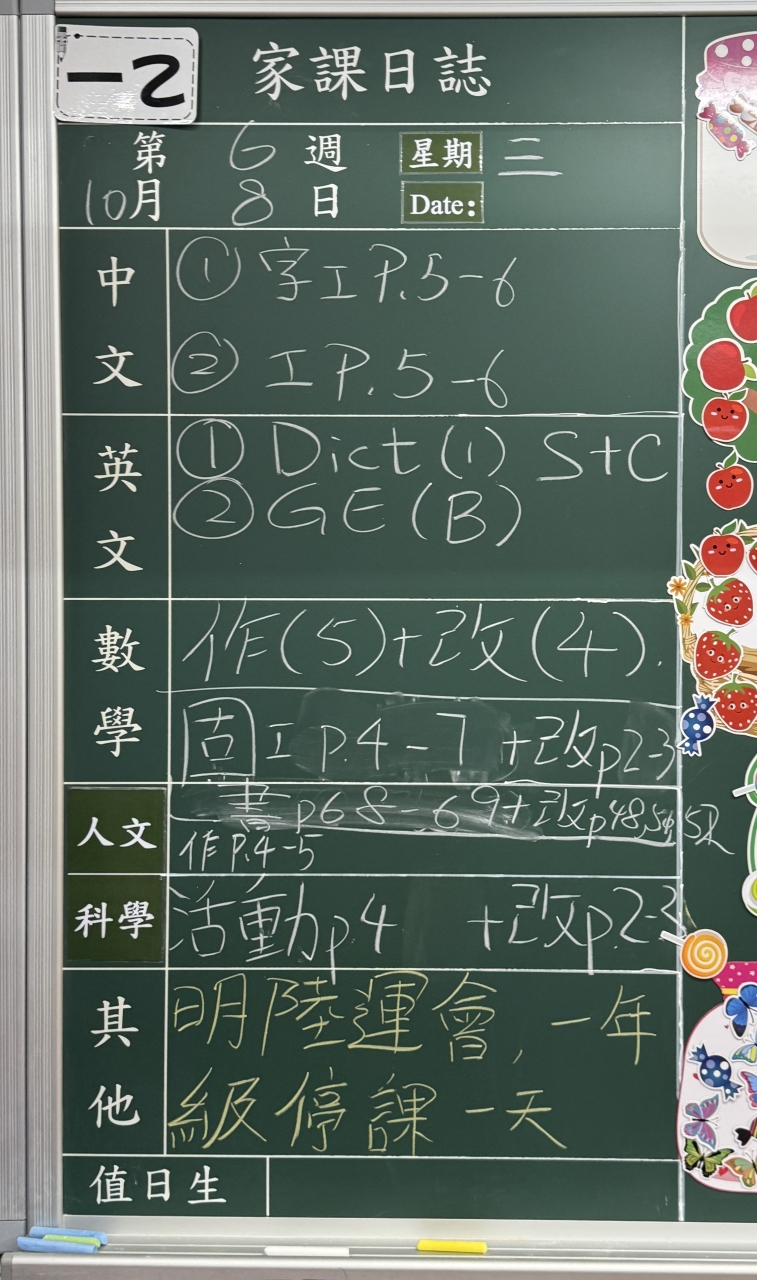 一乙
家課日誌
第 6 週 星期 三
10月 8 日 Date:
中文
① 字工 P.5-6
② 工 P.5-6
英文
① Dict (1) S+C
② GE (B)
數學
作(5)+改(4).
固工 p.4-7 +改p2-3
書 p68-69+改p48,
人文
作 P.4-5
科學
活動p4 +改p.2-3
其他
明陸運會,一年
級停課一天
值日生